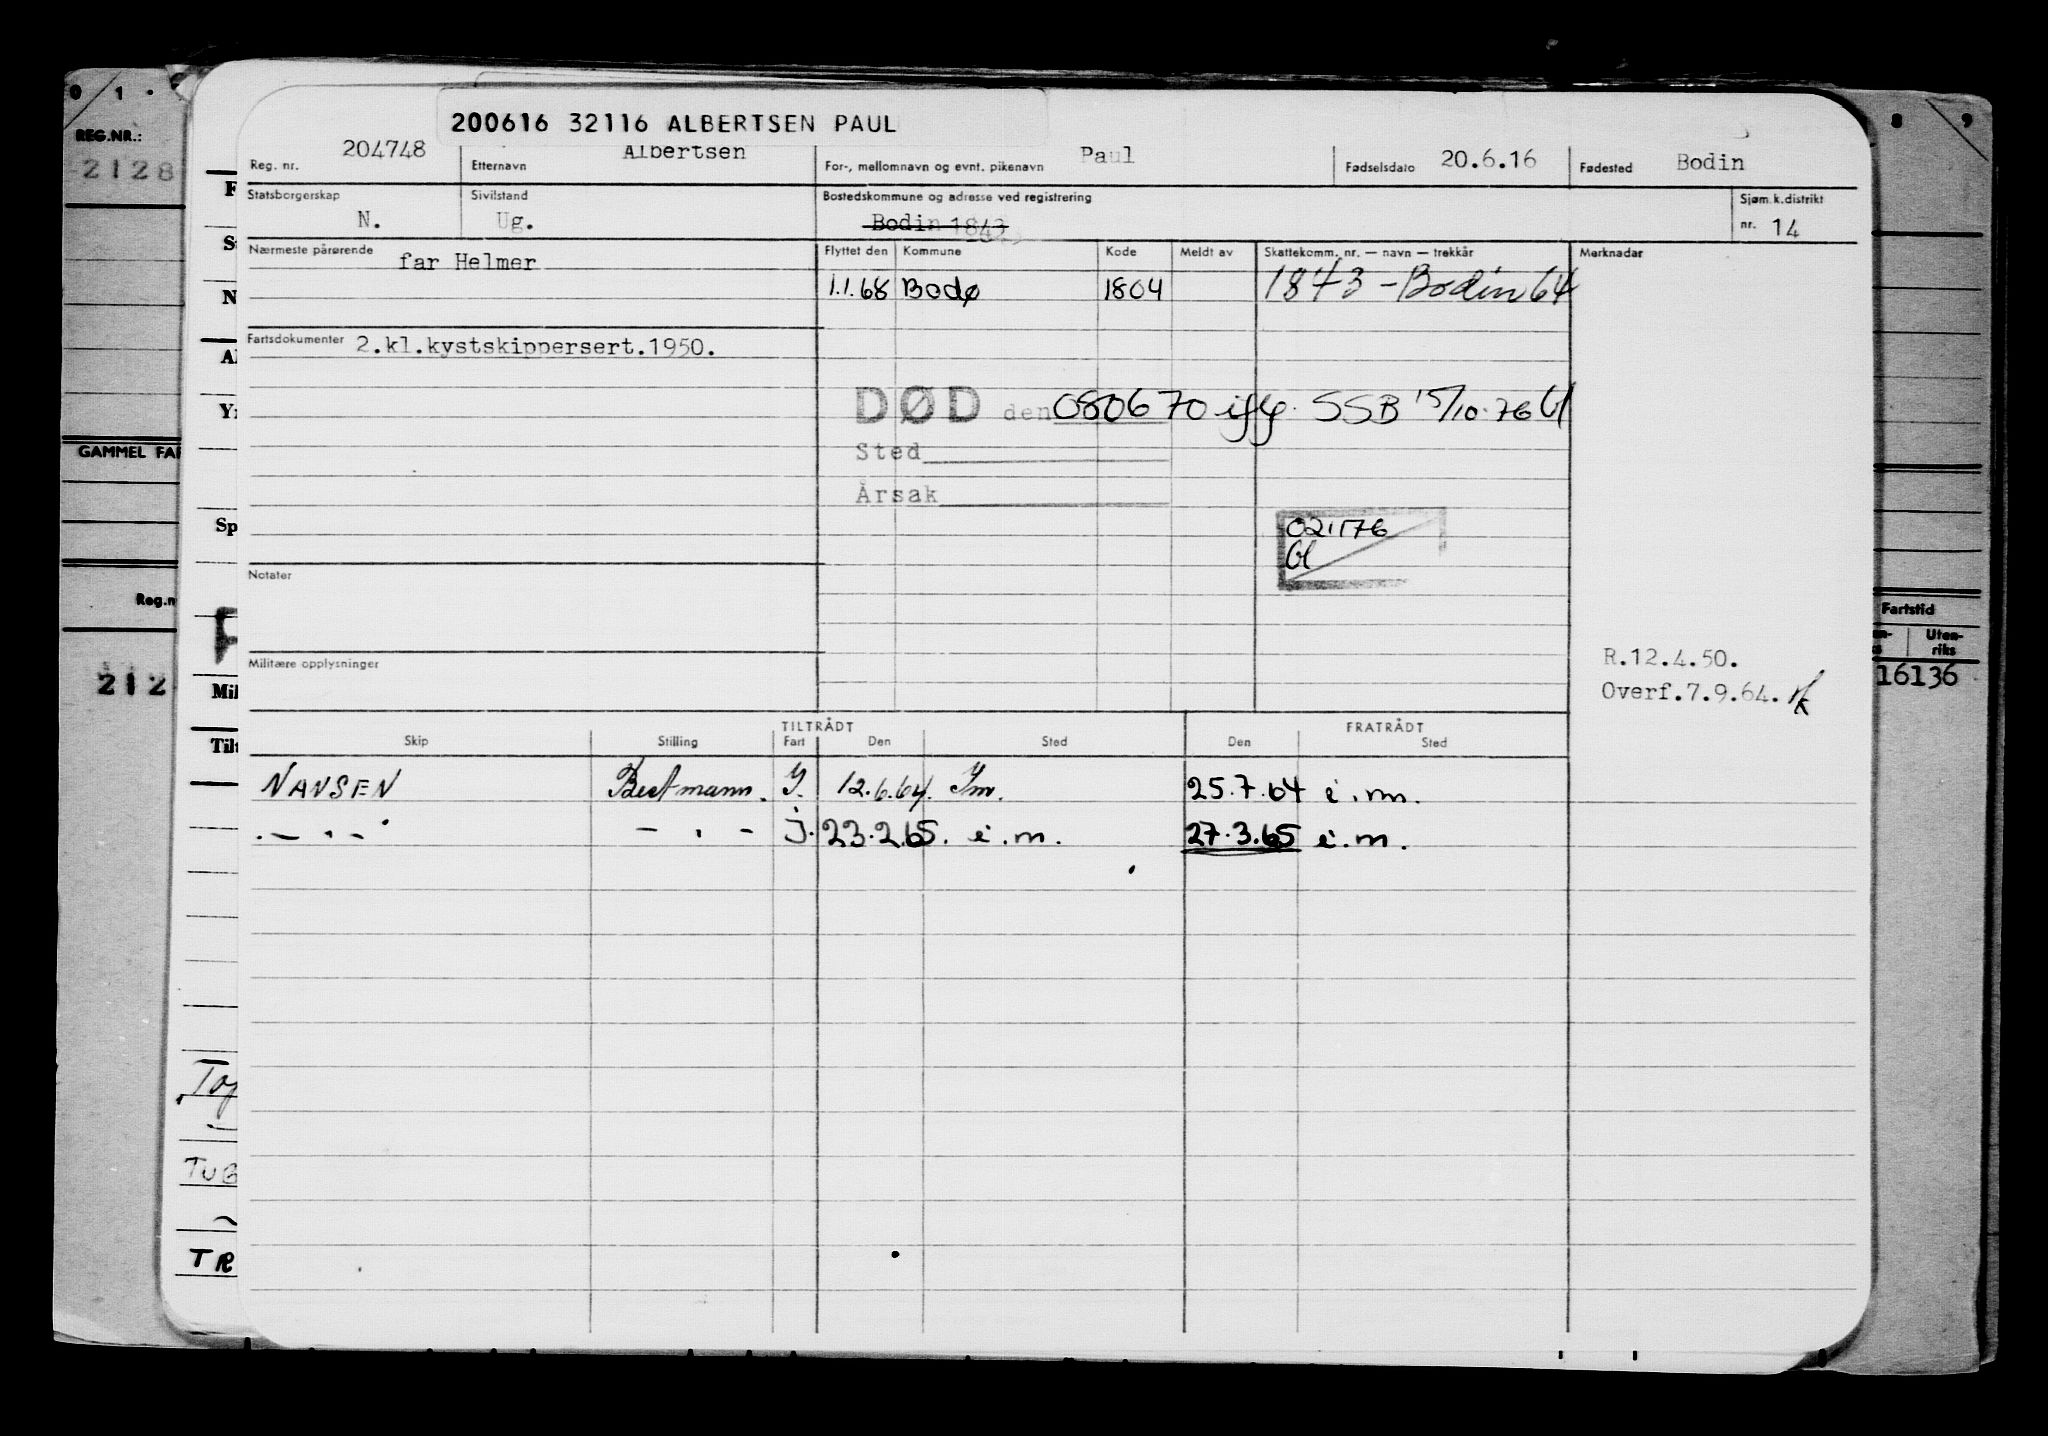 0 1
REG.NR.:
2128
GAMMEL FAR
Reg.n
212
F
S
N
Al
Y
Sp
Mil
Tilt
Top
TUB
TR
8 9
Fartstid
Uten-
riks
16136
200616 32116 ALBERTSEN PAUL
Reg. nr. 204748 Etternavn Albertsen For-, mellomnavn og evnt. pikenavn Paul Fødselsdato 20.6.16 Fødested Bodin
Statsborgerskap Sivilstand Bostedskommune og adresse ved registrering Sjøm.k.distrikt
N. Ug. Bodin 1843 nr. 14
Nærmeste pårørende far Helmer Flyttet den Kommune Kode Meldt av Skattekomm. nr. — navn — trekkår Merknadar
1.1.68 Bodø 1804 1843 - Bodin 64
Fartsdokumenter 2.kl.kystskippersert.1950.
DØD den 080670 iflg. SSB 15/10.76
Sted
Årsak
021176
Notater
Militære opplysninger
R.12.4.50.
Overf.7.9.64.
TILTRÅDT FRATRÅDT
Skip Stilling Fart Den Sted Den Sted
NANSEN Bestmann. I. 12.6.64. Im. 25.7.64 i.m.
- . - - . - j. 23.2.65. i.m. 27.3.65 i.m.